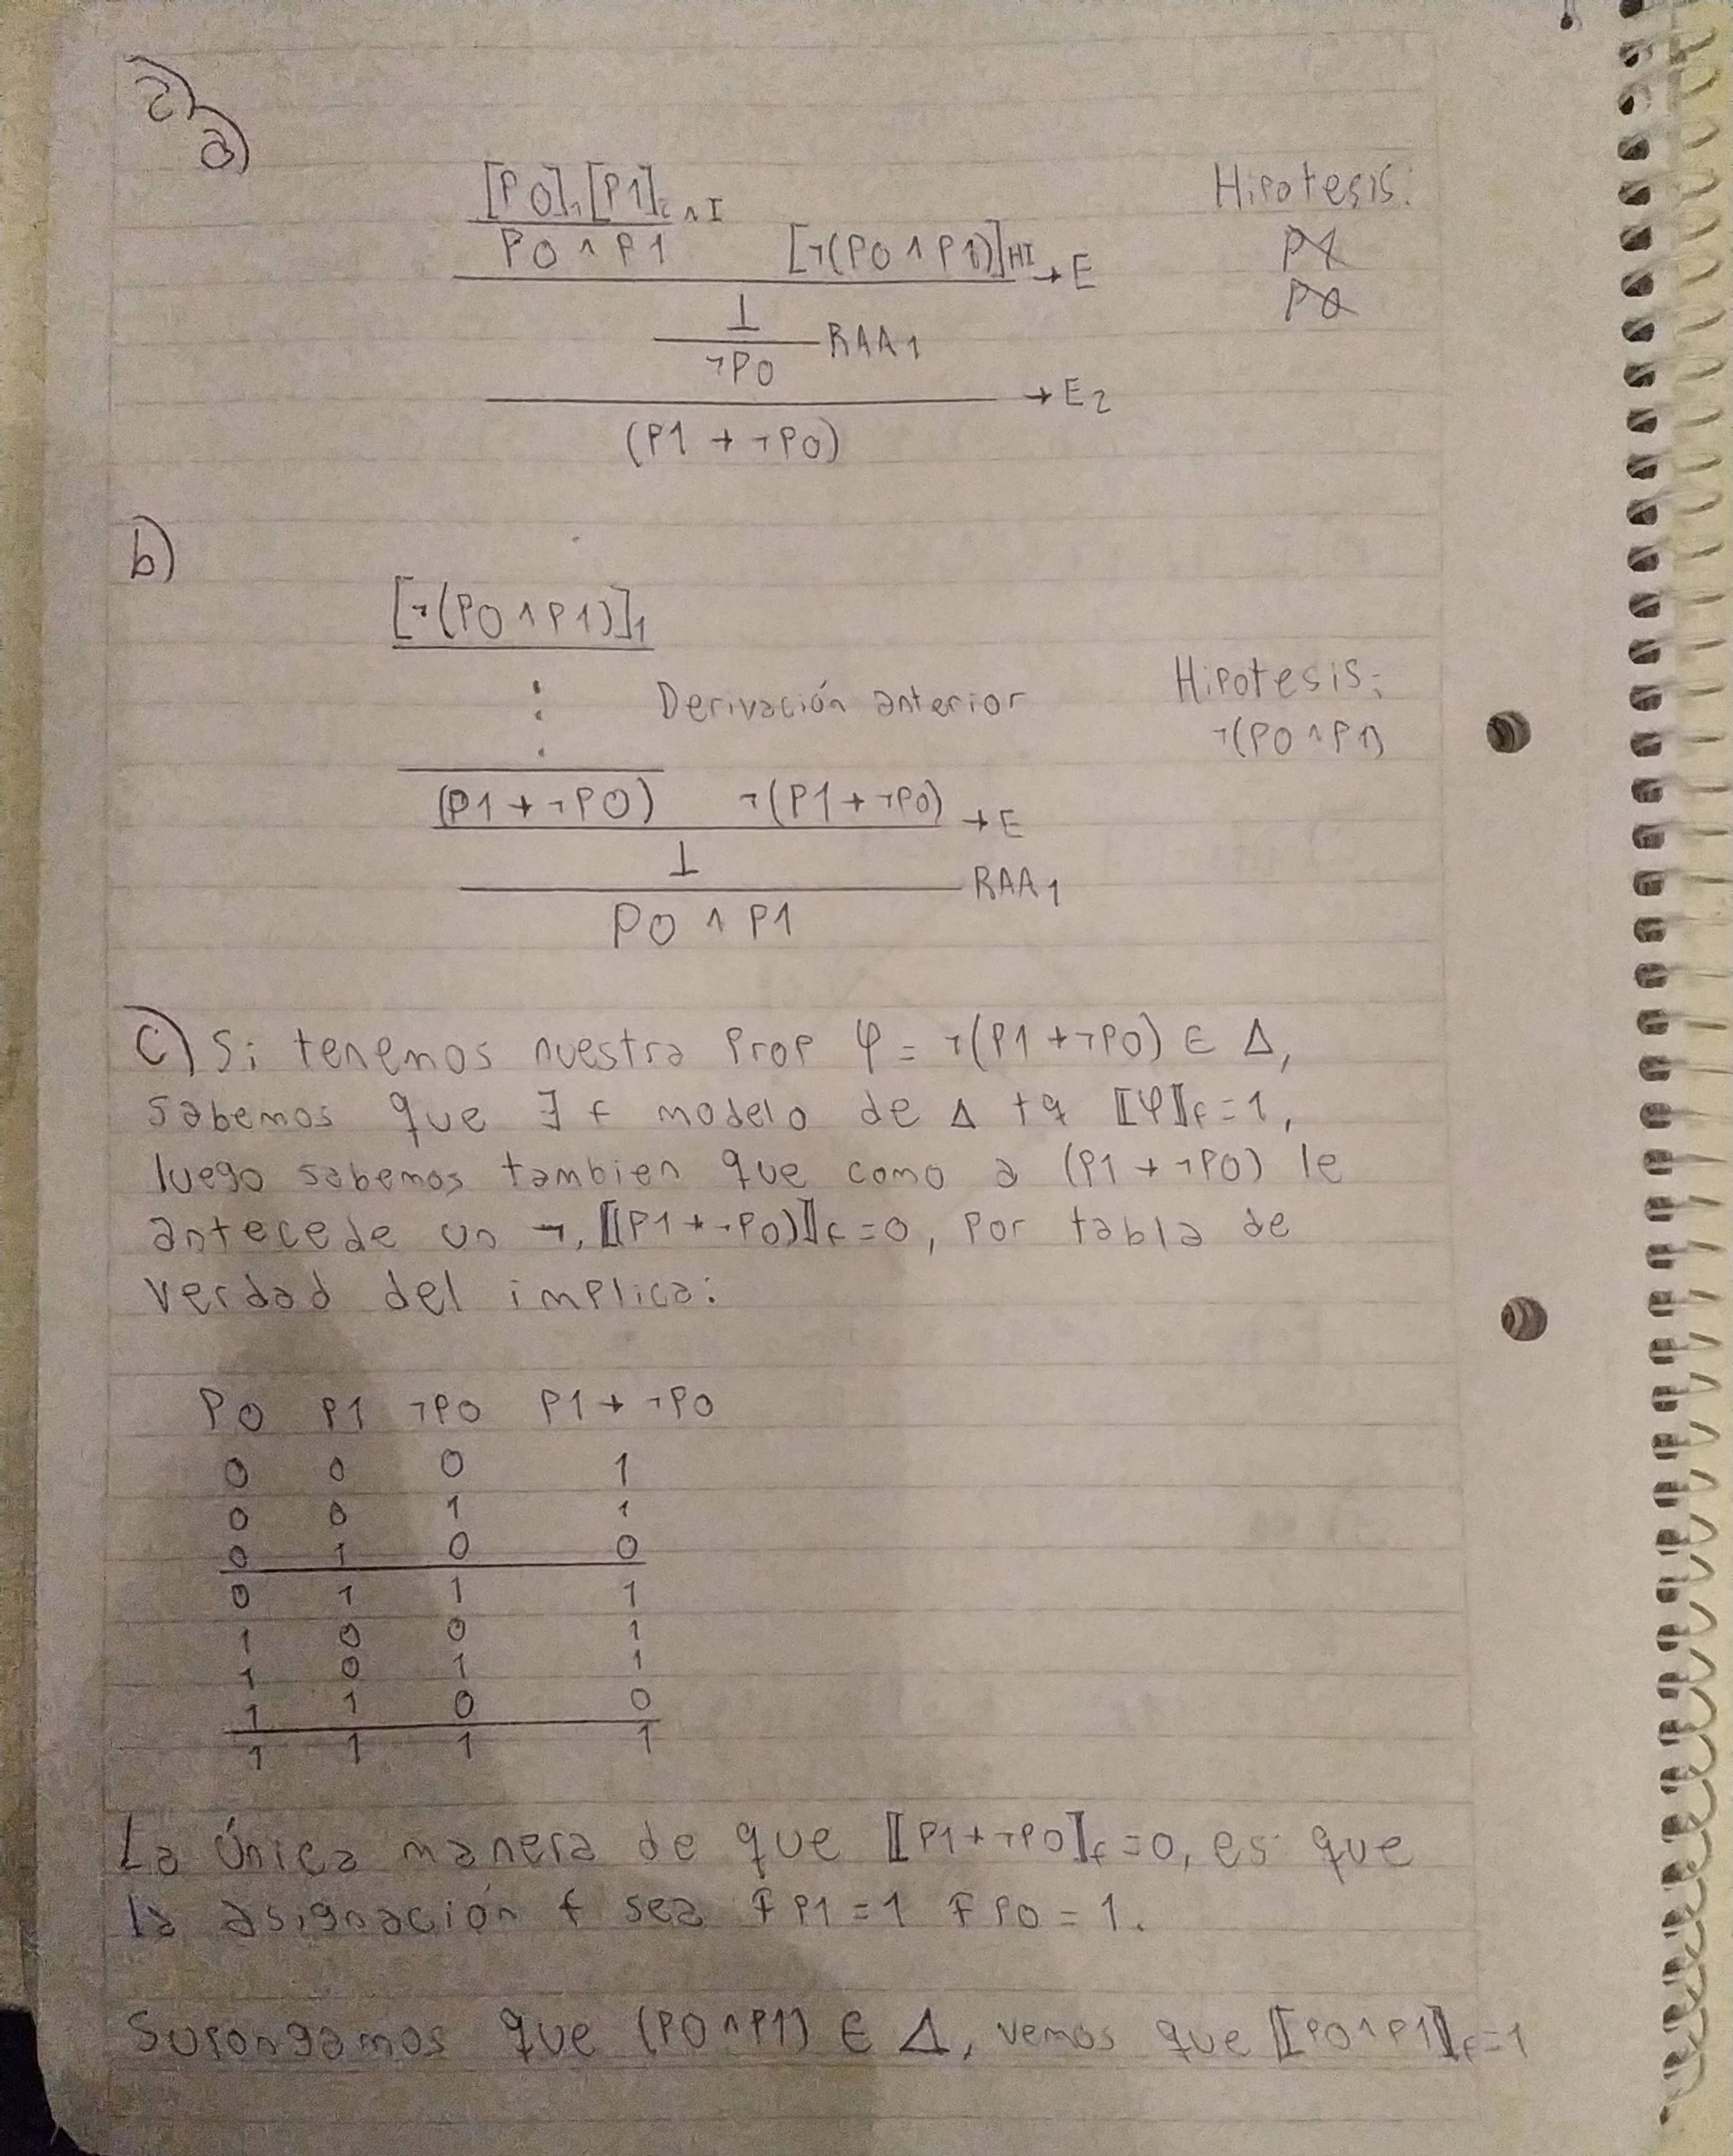 2)
a)
[P0]₁ [P1]₂ ∧I
P0 ∧ P1 [¬(P0 ∧ P1)]HI →E
⊥ RAA₁
¬P0 →E₂
(P1 → ¬P0)
Hipotesis:
P1
P0
b)
[¬(P0 ∧ P1)]₁
⋮ Derivación anterior
(P1 → ¬P0) ¬(P1 → ¬P0) →E
⊥ RAA₁
P0 ∧ P1
Hipotesis:
¬(P0 ∧ P1)
c) Si tenemos nuestra Prop φ = ¬(P1 → ¬P0) ∈ Δ,
sabemos que ∃ f modelo de Δ tq ⟦φ⟧f = 1,
luego sabemos tambien que como a (P1 → ¬P0) le
antecede un ¬, ⟦(P1 → ¬P0)⟧f = 0, Por tabla de
verdad del implica:
P0 P1 ¬P0 P1 → ¬P0
0 0 0 1
0 0 1 1
0 1 0 0
0 1 1 1
1 0 0 1
1 0 1 1
1 1 0 0
1 1 1 1
La única manera de que ⟦P1 → ¬P0⟧f = 0, es que
la asignación f sea f P1 = 1 f P0 = 1.
Supongamos que (P0 ∧ P1) ∈ Δ, vemos que ⟦P0 ∧ P1⟧f = 1